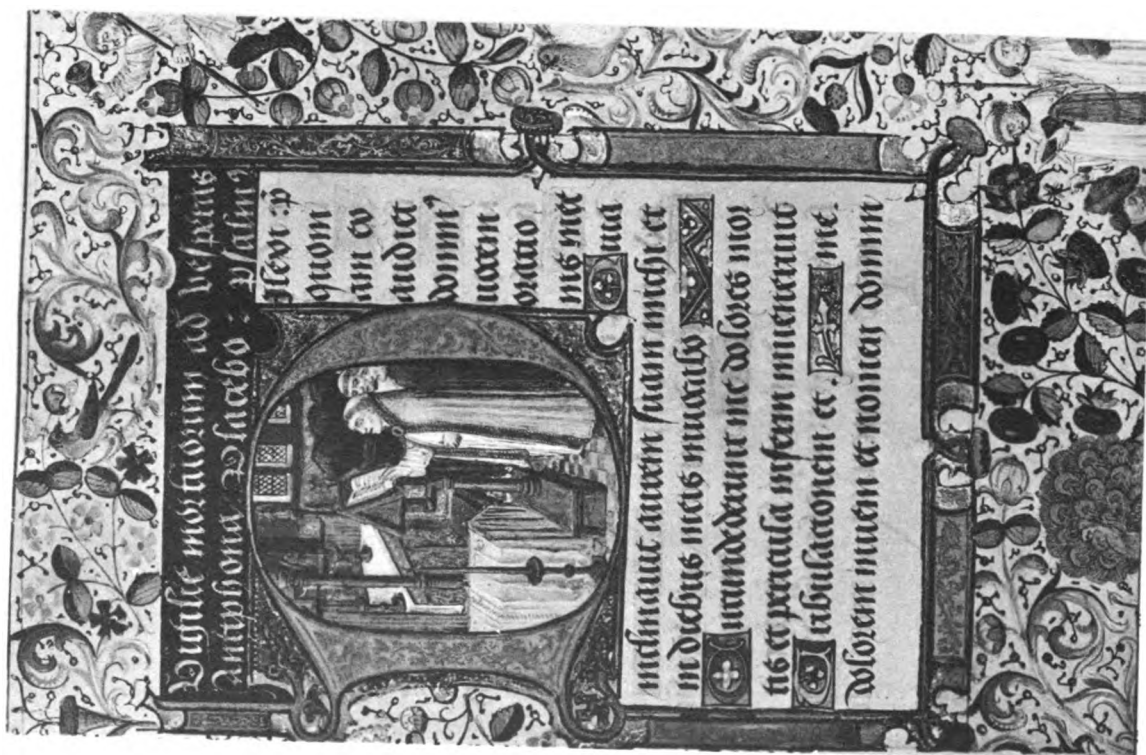 Vigilie mortuorum ad vesperas
Antiphona Placebo : Psalm⁹
Dilexi
quon
iam ex
audiet
domin⁹
uocem
oratio
nis mee
Quia
inclinauit aurem suam michi et
in diebus meis inuocabo
Circundederunt me dolores mor
tis et pericula inferni inuenerunt
Tribulacionem et me.
dolorem inueni et nomen domini